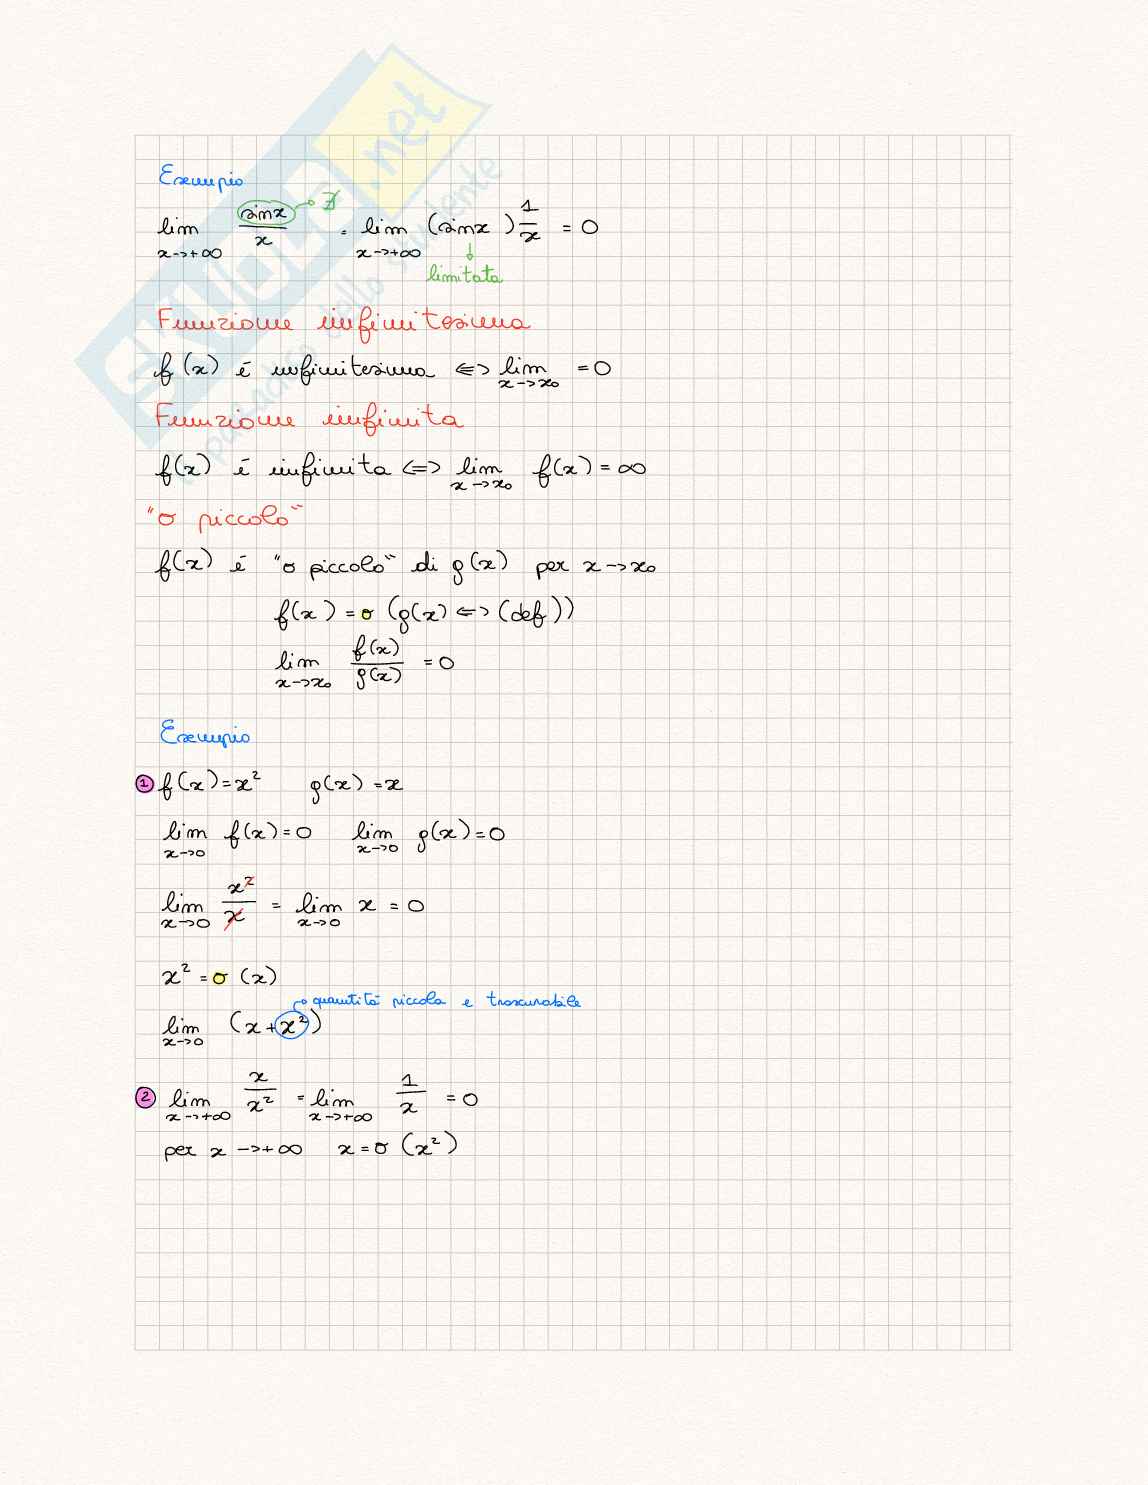 Esempio
lim x→+∞ sinx/x → ∄ = lim x→+∞ (sinx) 1/x = 0
limitata
Funzione infinitesima
f(x) é infinitesima <=> lim x→x₀ = 0
Funzione infinita
f(x) é infinita <=> lim x→x₀ f(x) = ∞
"o piccolo"
f(x) é "o piccolo" di g(x) per x→x₀
f(x) = o (g(x) <=> (def))
lim x→x₀ f(x)/g(x) = 0
Esempio
1 f(x) = x² g(x) = x
lim x→0 f(x) = 0 lim x→0 g(x) = 0
lim x→0 x²/x = lim x→0 x = 0
x² = o (x)
quantitá piccola e trascurabile
lim x→0 (x+x²)
2 lim x→+∞ x/x² = lim x→+∞ 1/x = 0
per x→+∞ x = o (x²)
SKUOLA.net